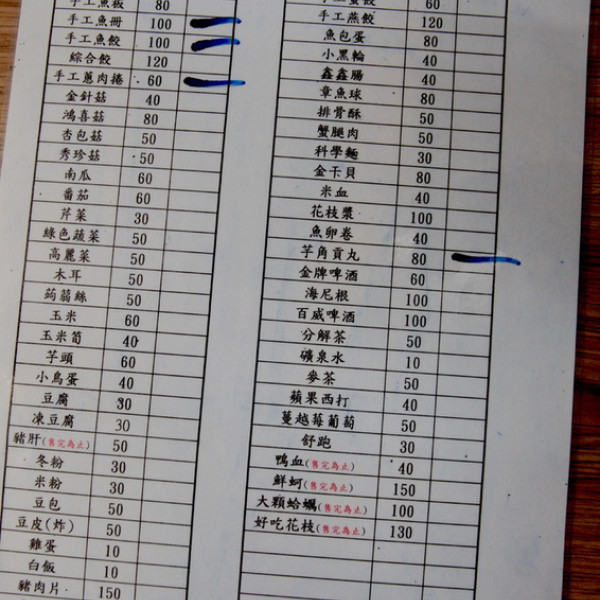 手工魚板 80
手工魚冊 100
手工魚餃 100
綜合餃 120
手工蔥肉捲 60
金針菇 40
鴻喜菇 80
杏包菇 50
秀珍菇 50
南瓜 60
番茄 60
芹菜 30
綠色蔬菜 50
高麗菜 50
木耳 50
蒟蒻絲 50
玉米 60
玉米筍 40
芋頭 60
小鳥蛋 40
豆腐 30
凍豆腐 30
豬肝(售完為止) 50
冬粉 30
米粉 30
豆包 50
豆皮(炸) 50
雞蛋 10
白飯 10
豬肉片 150
60
手工燕餃 120
魚包蛋 80
小黑輪 40
鑫鑫腸 40
章魚球 80
排骨酥 50
蟹腿肉 50
科學麵 30
金干貝 80
米血 40
花枝漿 100
魚卵卷 40
芋角貢丸 80
金牌啤酒 60
海尼根 100
百威啤酒 100
分解茶 50
礦泉水 10
麥茶 50
蘋果西打 40
蔓越莓葡萄 50
舒跑 30
鴨血(售完為止) 40
鮮蚵(售完為止) 150
大顆蛤蠣(售完為止) 100
好吃花枝(售完為止) 130